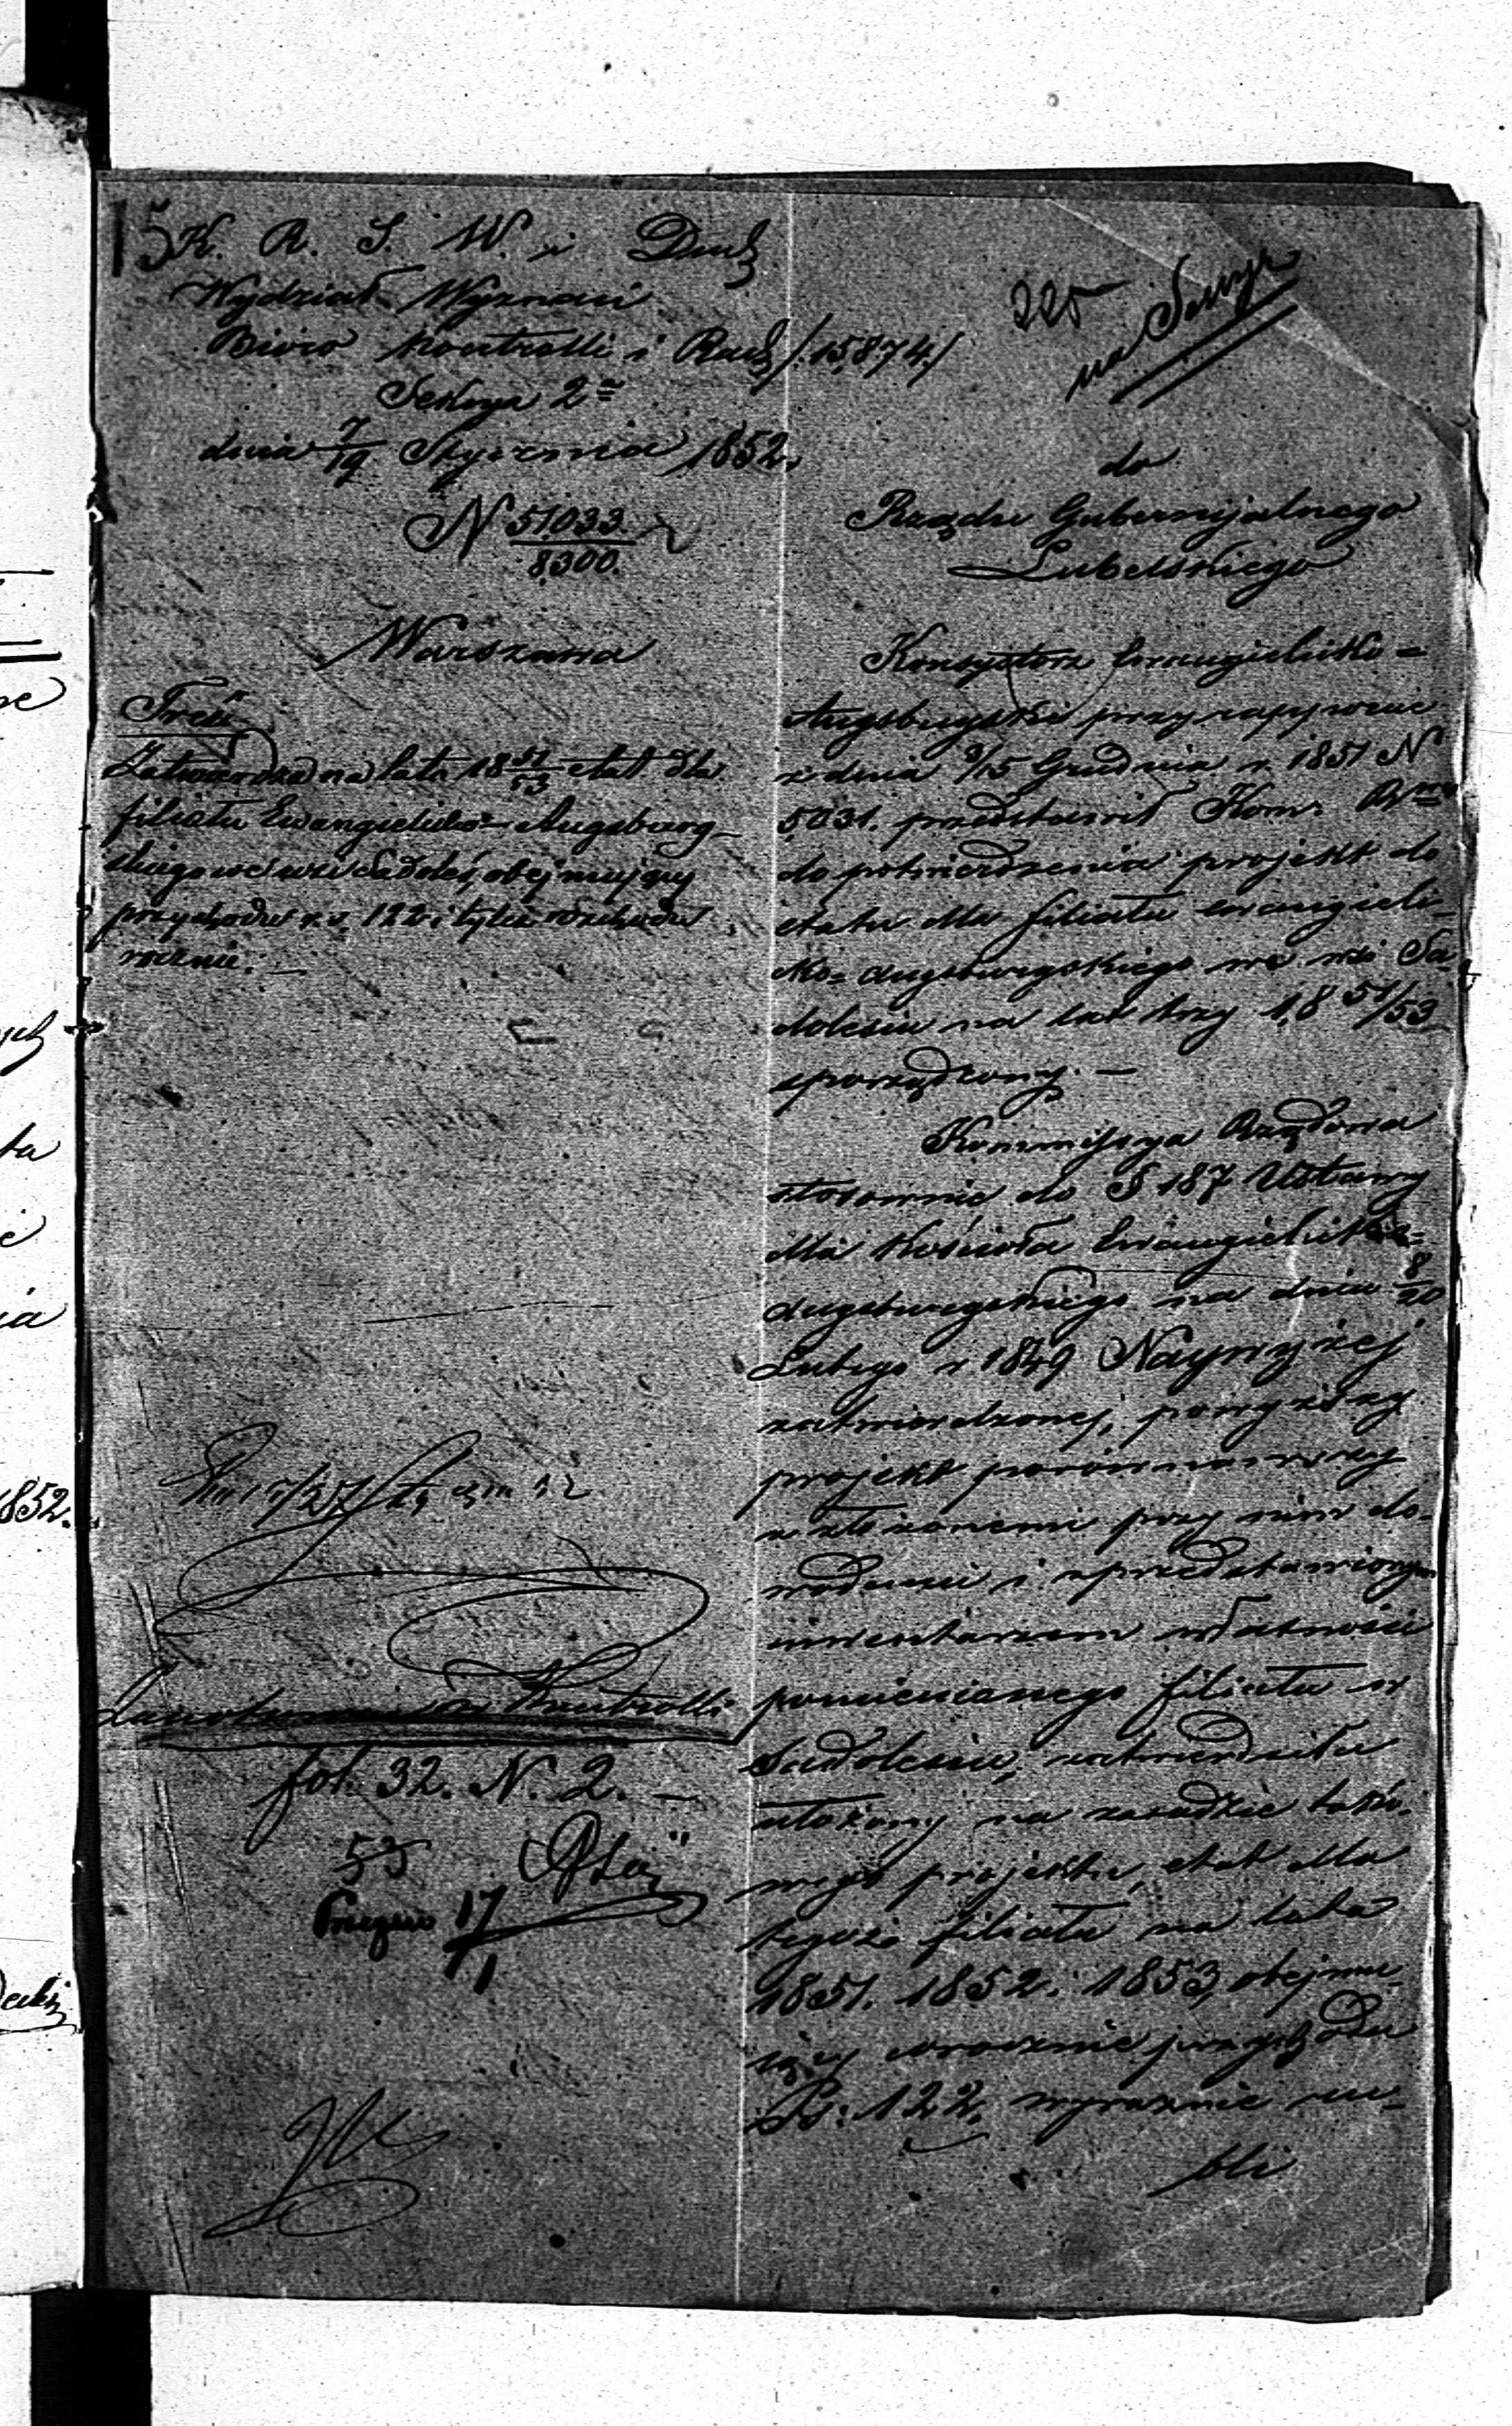 15
K. R. S. W. i Duch
Wydział Wyznań
Biuro Kontrolli i Rach /:15874:/
Sekcya 2ª
dnia 7/19 Stycznia 1852.
N 51033/8300.
Warszawa
Treść
Zatwierdza na lata 18 51/53 etat dla
filiału Ewangielicko-Augsburg-
skiego we wsi Sadoleś, obejmujący
przychodu r.s. 122 i tyleż rozchodu
rocznie. —
Kontrolli
fol. 32. N. 2. —
53
17/1
225
na Sessyi
do
Rządu Gubernijalnego
Lubelskiego
Konsystorz Ewangielicko=
Augsburgski przy
z dnia 3/15 Grudnia r. 1851 N
5031. przedstawił Kom. Rząd
do potwierdzenia projekt do
etatu dla filiału ewangieli-
cko-augsburgskiego we wsi Sa-
dolesiu na lat trzy 18 51/53
sporządzony. —
Kommissya Rządowa
stosownie do § 187 Ustawy
dla Kościoła Ewangielicko=
augsburgskiego na dniu 8/20
Lutego r 1849 Naywyżej
zatwierdzonej, powyższy
projekt porównawszy
z złożonemi przy nim do-
wodami i z przedstawionym
inwentarzem własności
pomienionego filiału w
Sadolesiu, zatwierdziła
ułożony na zasadzie tako-
wego projektu, etat dla
tegoż filiału na lata
1851. 1852. i 1853, obejmu-
jący corocznie przychodu
Rs: 122. wyraźnie ru-
bli